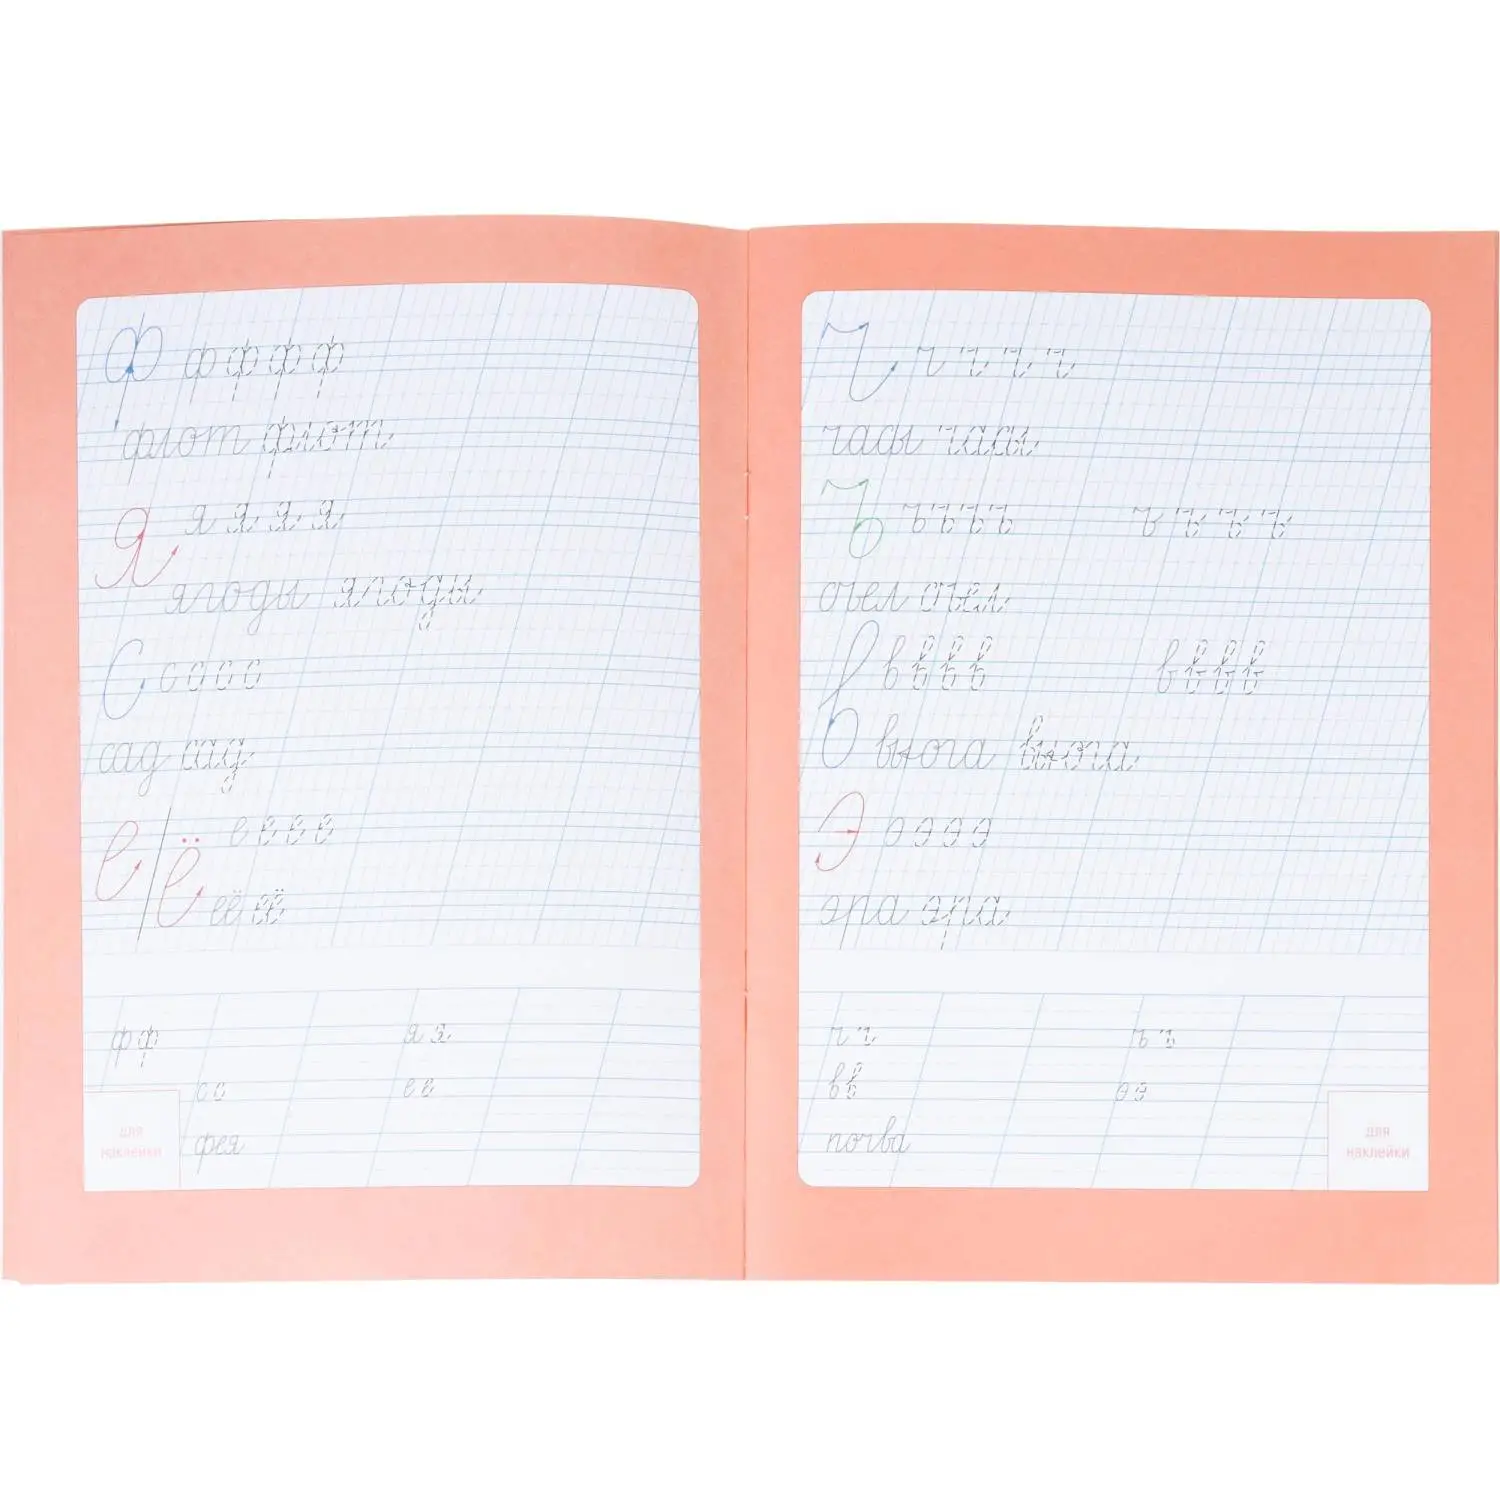 ф ф ф ф ф
флот флот
я я я я я
ягоды ягоды
с с с с с
сад сад
е / ё е е е е
её её
ф ф я я
с с е е
для
наклейки
фея
ч ч ч ч ч
часы часы
ъ ъ ъ ъ ъ ъ ъ ъ ъ
съел съел
в в в в в в в в в
вьюга вьюга
э э э э э
эра эра
ч ч ъ ъ
в в э э
почва
для
наклейки